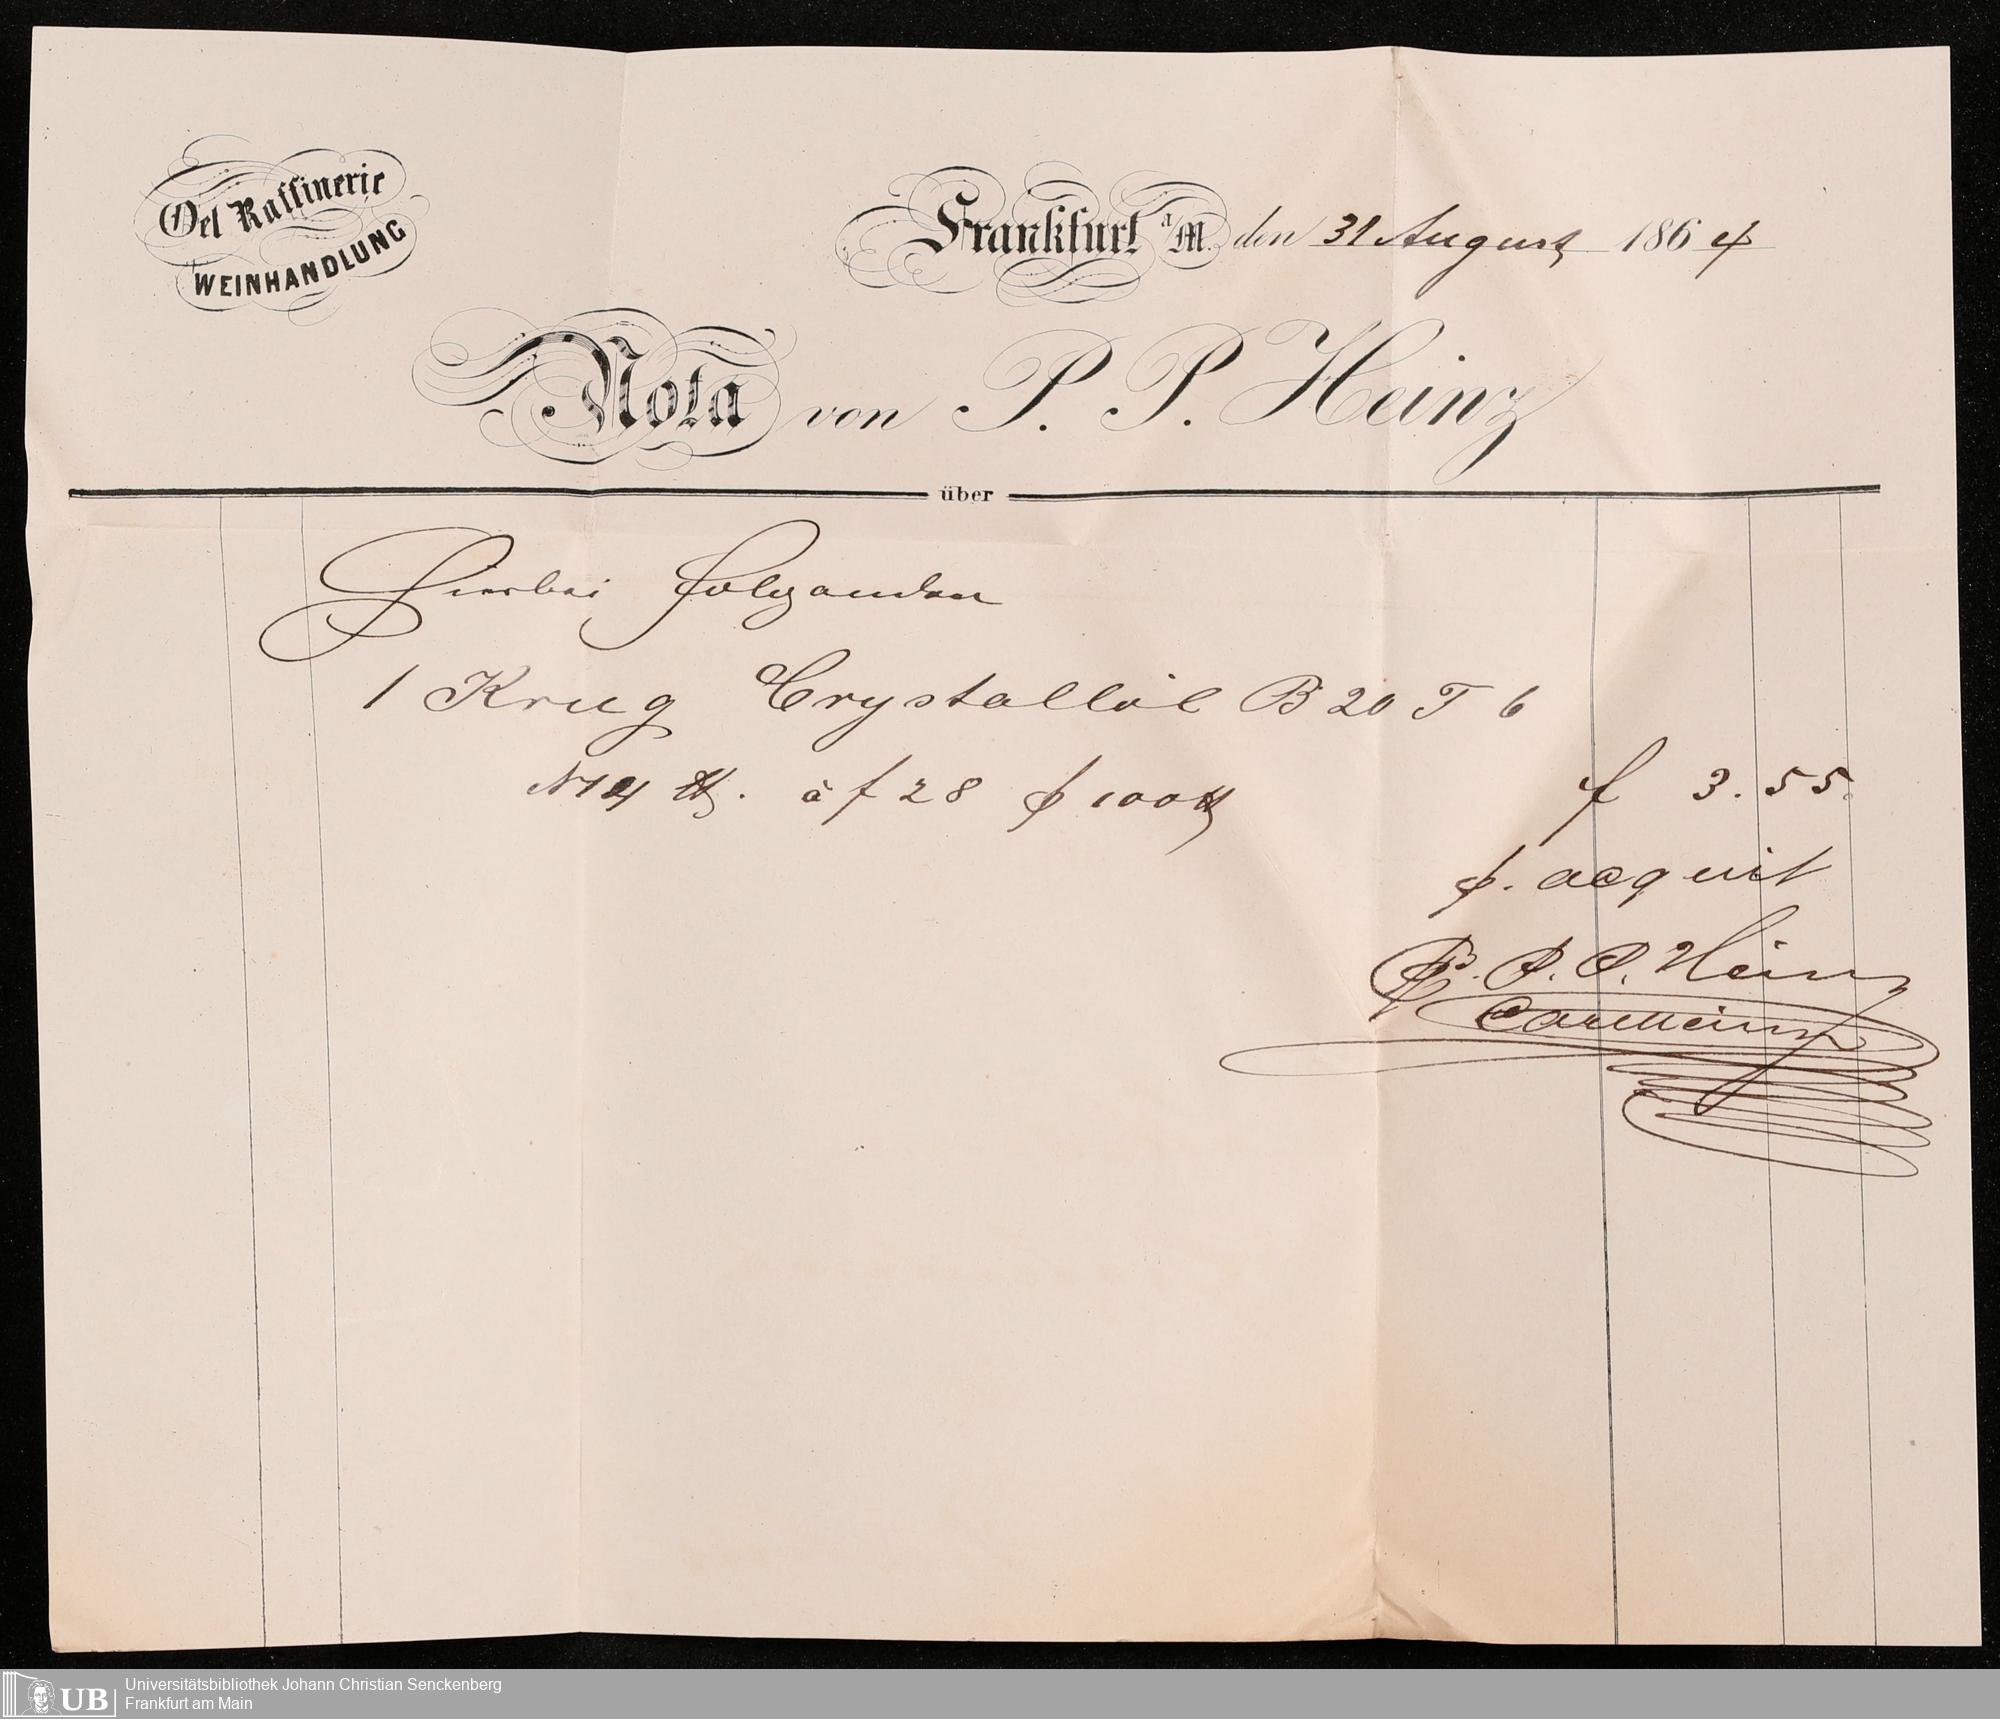 Oel Raffinerie
WEINHANDLUNG
Frankfurt a/M. den 31 August 1864
Nota von P. P. Heinz
über
Hierbei folgenden
1 Krug Crystallöl B 20 T 6
N 14 ℔. à f 28 p 100 ℔
f 3.55.
p. acquit
P. P. P. Heinz
Carl Heinz
UB
Universitätsbibliothek Johann Christian Senckenberg
Frankfurt am Main